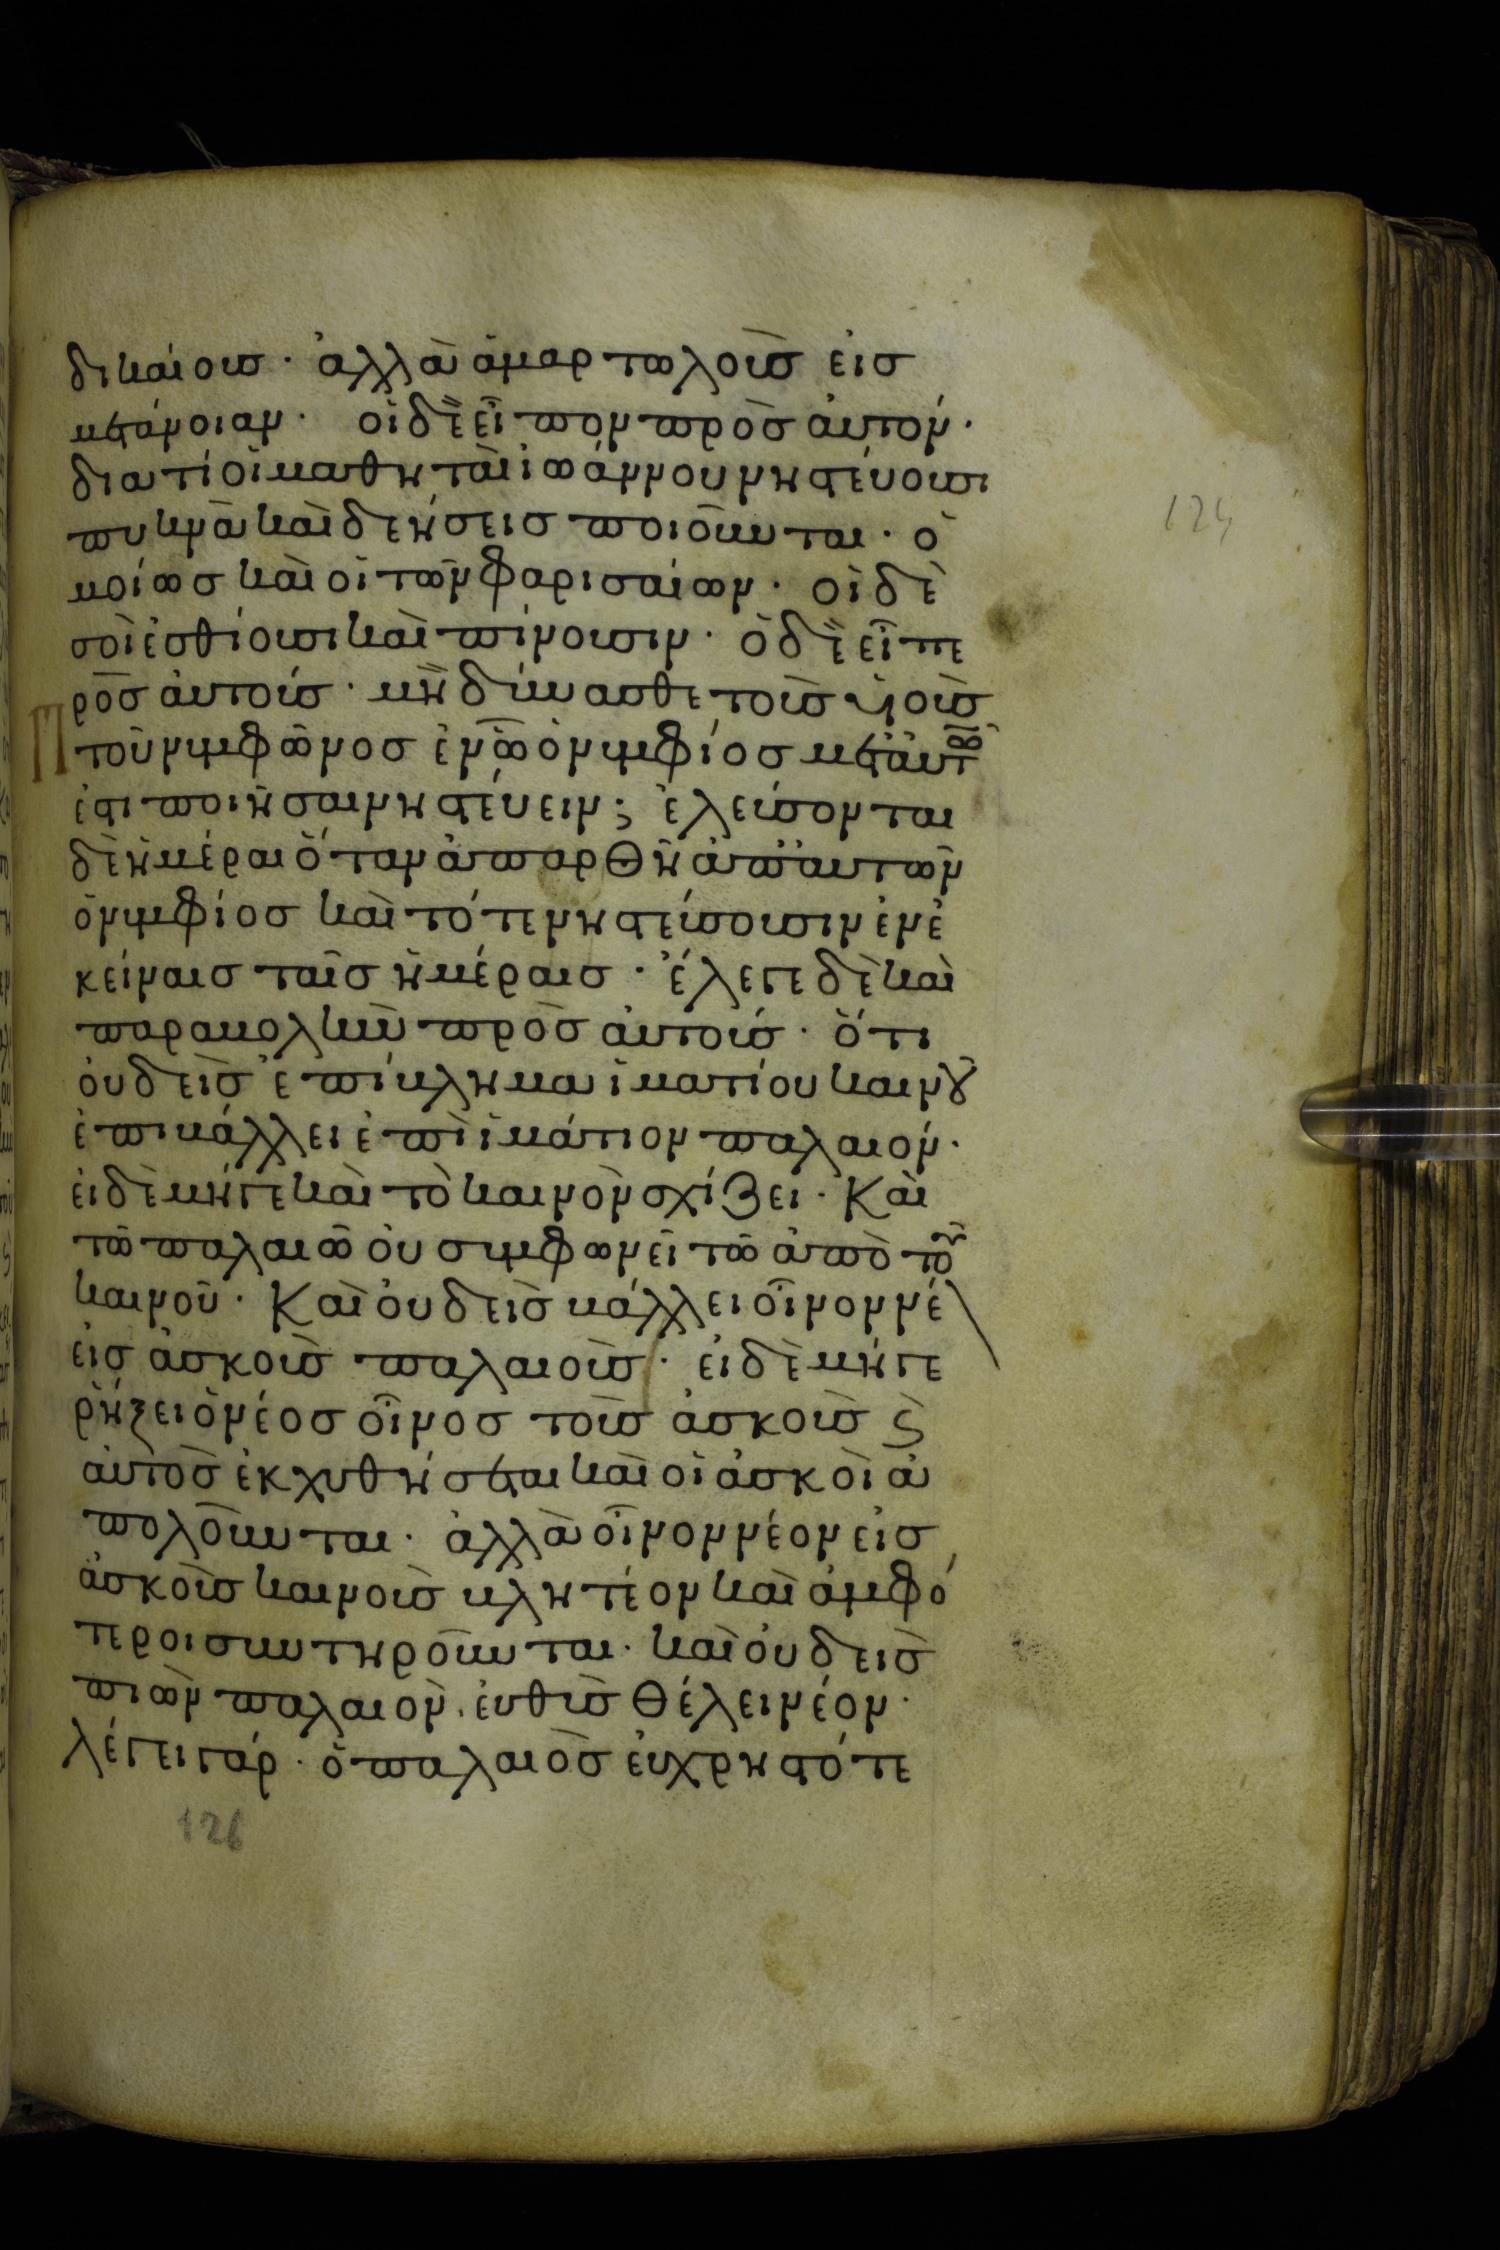 δικαίους · ἀλλὰ ἁμαρτωλοὺς εἰς
μετάνοιαν · οἱ δὲ εἶπον πρὸς αὐτόν ·
διατί οἱ μαθηταὶ ἰωάννου νηστεύουσι
πυκνὰ καὶ δεήσεις ποιοῦνται · ὁ
μοίως καὶ οἱ τῶν φαρισαίων · οἱ δὲ
σοὶ ἐσθίουσι καὶ πίνουσιν · ὁ δὲ εἶπε
ρὸς αὐτούς · μὴ δύνασθε τοὺς υἱοὺς
τοῦ νυμφῶνος ἐν ᾧ ὁ νυμφίος μετ αὐτῶ
ἐστι ποιῆσαι νηστεύειν ; ἐλεύσονται
δὲ ἡμέραι ὅταν ἀπαρθῆ ἀπ αὐτῶν
ὁ νυμφίος καὶ τότε νηστεύσουσιν ἐν ἐ
κείναις ταῖς ἡμέραις · ἔλεγε δὲ καὶ
παραβολὴν πρὸς αὐτούς · ὅτι
οὐδεὶς ἐπίβλημα ἱματίου καινοῦ
ἐπιβάλλει ἐπὶ ἱμάτιον παλαιόν ·
εἰ δὲ μήγε καὶ τὸ καινὸν σχίζει · Καὶ
τῶ παλαιῶ οὐ συμφωνεῖ τῶ ἀπὸ τοῦ
καινοῦ · Καὶ οὐδεὶς βάλλει οἶνον νέ
εἰς ἀσκοὺς παλαιούς · εἰ δὲ μήγε
ῥήξει ὁ νέος οἶνος τοὺς ἀσκοὺς ϛ
αὐτὸς ἐκχυθήσεται καὶ οἱ ἀσκοὶ ἀ
πολοῦνται · ἀλλὰ οἶνον νέον εἰς
ἀσκοὺς καινοὺς βλητέον καὶ ἀμφό
τεροι συντηροῦνται · καὶ οὐδεὶς
πιὼν παλαιὸν . εὐθὺς θέλει νέον ·
λέγει γάρ · ὁ παλαιὸς εὐχρηστότε
Π
124
126